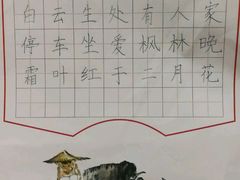 白云生处有人家
停车坐爱枫林晚
霜叶红于二月花